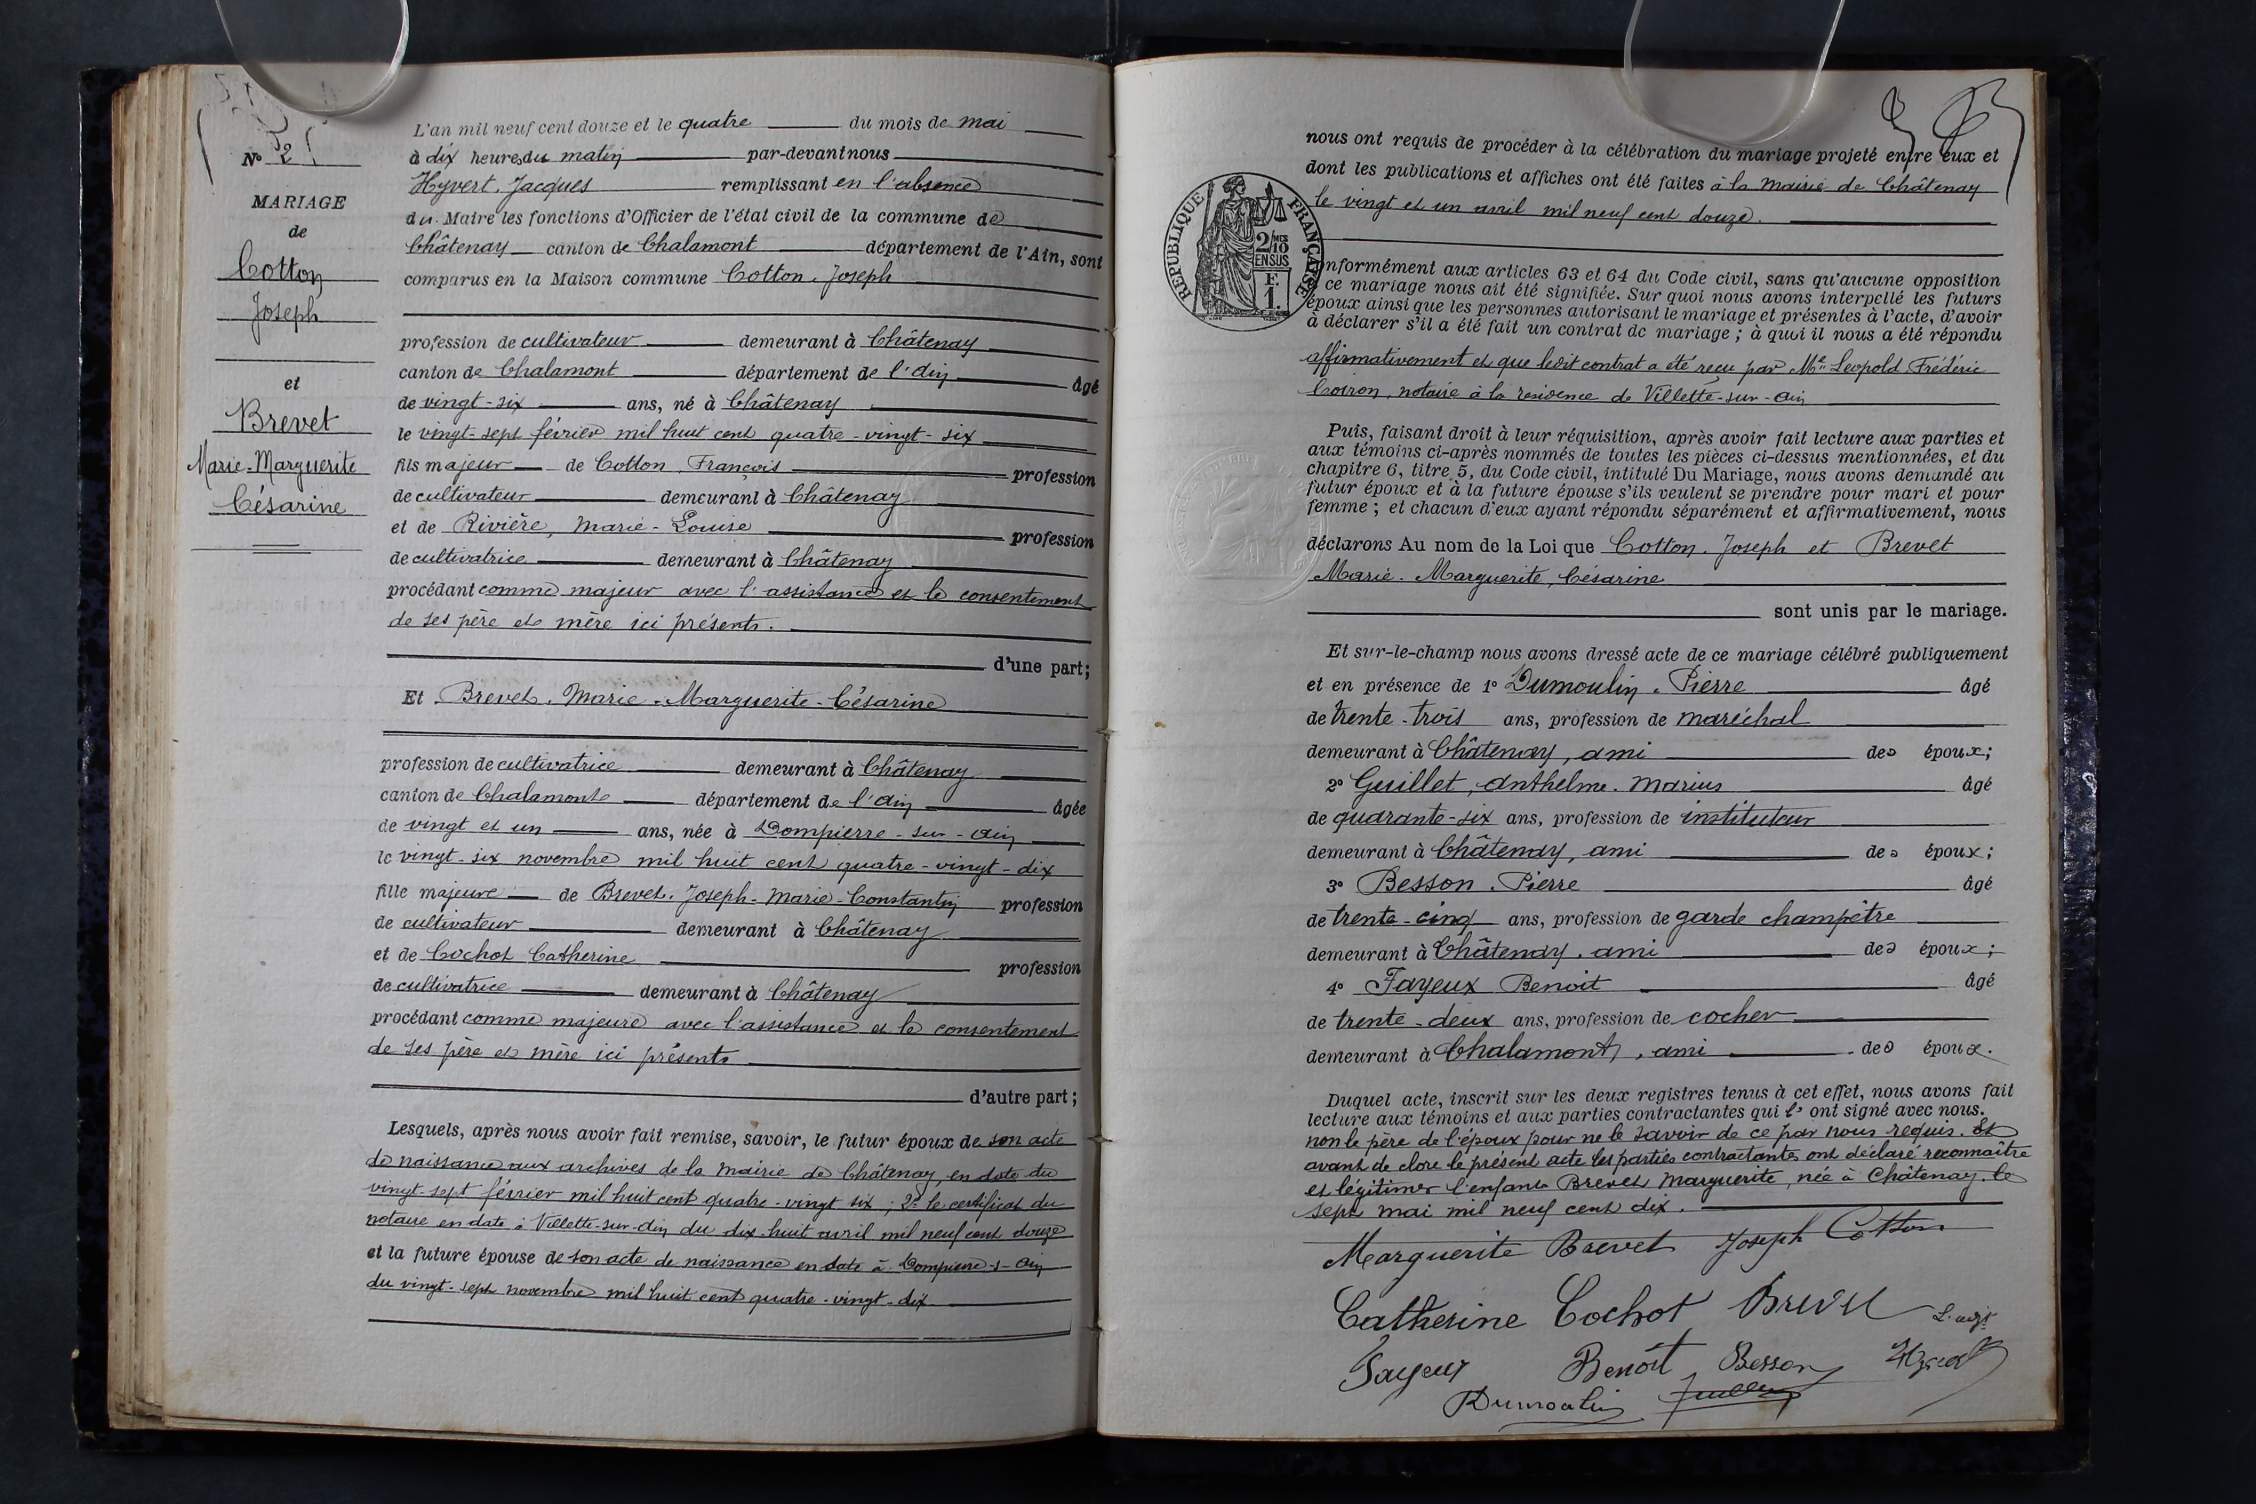 N° 2
MARIAGE
de
Cotton
Joseph
et
Brevet
Marie-Marguerite
Césarine
L'an mil neuf cent douze et le quatre du mois de mai
à dix heures du matin par-devant nous
Hyvert, Jacques remplissant en l'absence
du Maire les fonctions d'Officier de l'état civil de la commune de
Châtenay canton de Chalamont département de l'Ain, sont
comparus en la Maison commune Cotton, Joseph
profession de cultivateur demeurant à Châtenay
canton de Chalamont département de l'Ain âgé
de vingt-six ans, né à Châtenay
le vingt-sept février mil huit cent quatre-vingt-six
fils majeur de Cotton, François profession
de cultivateur demeurant à Châtenay
et de Rivière, Marie-Louise profession
de cultivatrice demeurant à Châtenay
procédant comme majeur avec l'assistance et le consentement
de ses père et mère ici présents.
d'une part;
Et Brevet, Marie-Marguerite-Césarine
profession de cultivatrice demeurant à Châtenay
canton de Chalamont département de l'Ain âgée
de vingt et un ans, née à Dompierre-sur-Ain
le vingt-six novembre mil huit cent quatre-vingt-dix
fille majeure de Brevet, Joseph-Marie-Constantin profession
de cultivateur demeurant à Châtenay
et de Cochot Catherine profession
de cultivatrice demeurant à Châtenay
procédant comme majeure avec l'assistance et le consentement
de ses père et mère ici présents
d'autre part;
Lesquels, après nous avoir fait remise, savoir, le futur époux de son acte
de naissance aux archives de la mairie de Châtenay, en date du
vingt-sept février mil huit cent quatre-vingt six; 2° le certificat du
notaire en date à Villette-sur-Ain du dix-huit avril mil neuf cent douze
et la future épouse de son acte de naissance en date à Dompierre-s-Ain
du vingt-sept novembre mil huit cent quatre-vingt-dix
nous ont requis de procéder à la célébration du mariage projeté entre eux et
dont les publications et affiches ont été faites à la mairie de Châtenay
le vingt et un avril mil neuf cent douze.
RÉPUBLIQUE FRANÇAISE
2/10 MES
EN SUS
F.
1.
conformément aux articles 63 et 64 du Code civil, sans qu'aucune opposition
à ce mariage nous ait été signifiée. Sur quoi nous avons interpellé les futurs
époux ainsi que les personnes autorisant le mariage et présentes à l'acte, d'avoir
à déclarer s'il a été fait un contrat de mariage; à quoi il nous a été répondu
affirmativement et que ledit contrat a été reçu par Me Leopold Frédéric
Coiron, notaire à la residence de Villette-sur-Ain
Puis, faisant droit à leur réquisition, après avoir fait lecture aux parties et
aux témoins ci-après nommés de toutes les pièces ci-dessus mentionnées, et du
chapitre 6, titre 5, du Code civil, intitulé Du Mariage, nous avons demandé au
futur époux et à la future épouse s'ils veulent se prendre pour mari et pour
femme; et chacun d'eux ayant répondu séparément et affirmativement, nous
déclarons Au nom de la Loi que Cotton, Joseph et Brevet
Marie-Marguerite, Césarine
sont unis par le mariage.
Et sur-le-champ nous avons dressé acte de ce mariage célébré publiquement
et en présence de 1° Dumoulin, Pierre âgé
de trente-trois ans, profession de maréchal
demeurant à Châtenay, ami des époux;
2° Guillet, Anthelme-Marius âgé
de quarante-six ans, profession de instituteur
demeurant à Châtenay, ami des époux;
3° Besson, Pierre âgé
de trente-cinq ans, profession de garde champêtre
demeurant à Châtenay, ami des époux;
4° Fayeux Benoit âgé
de trente-deux ans, profession de cocher
demeurant à Chalamont, ami des époux.
Duquel acte, inscrit sur les deux registres tenus à cet effet, nous avons fait
lecture aux témoins et aux parties contractantes qui l' ont signé avec nous.
non le père de l'époux pour ne le savoir de ce par nous requis. Et
avant de clore le présent acte les parties contractantes ont déclaré reconnaître
et légitimer l'enfant Brevet Marguerite, née à Châtenay, le
sept mai mil neuf cent dix.
Marguerite Brevet Joseph Cotton
Catherine Cochot Brevet L'adjt
Fayeux Benoit Besson Hyvert
Dumoulin Guillet